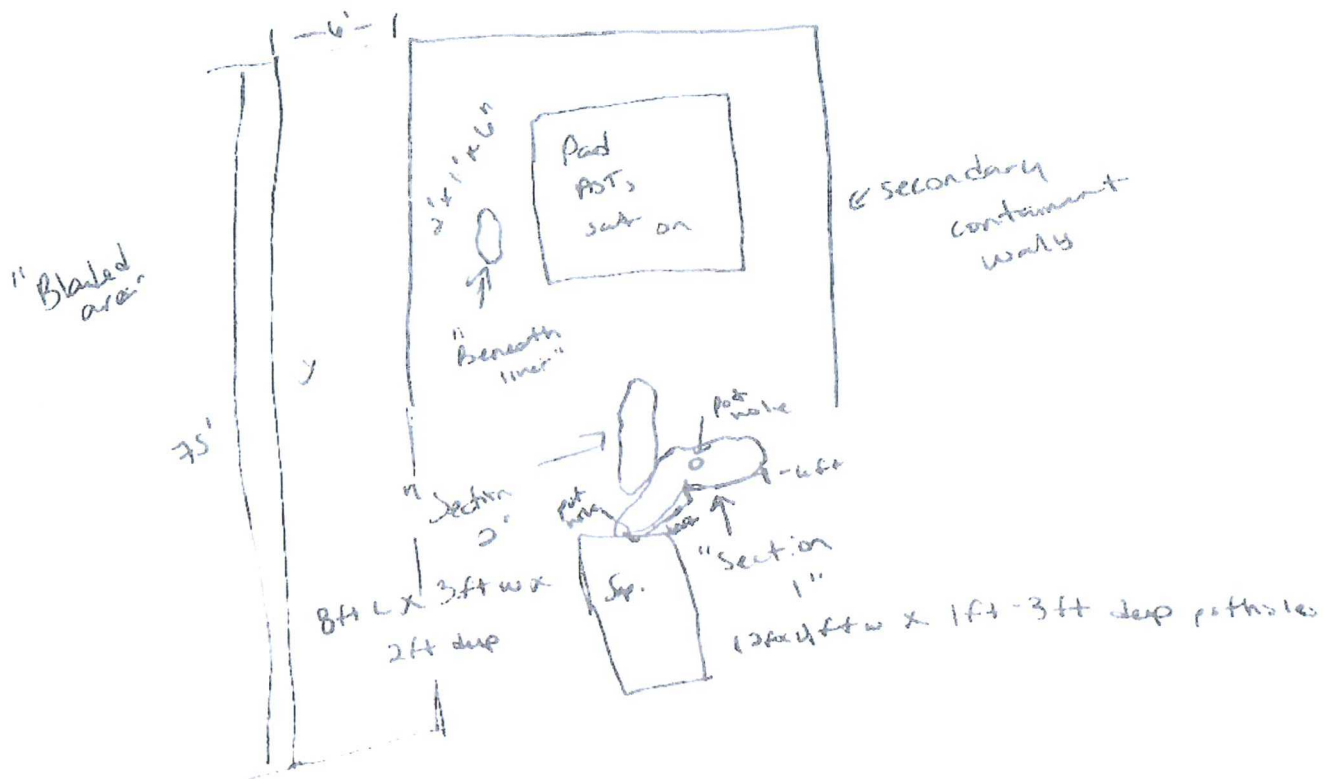 6'
2' x 1' x 6"
Pad
ASTs
sat on
← secondary
containment
walls
"Bladed
area"
"Beneath
liner"
75'
pot
hole
4ft
"Section
2"
pot
hole
"Section
1"
Sep.
8ft L x 3ft w x
2ft deep
12ft x 4ft w x 1ft-3ft deep potholes